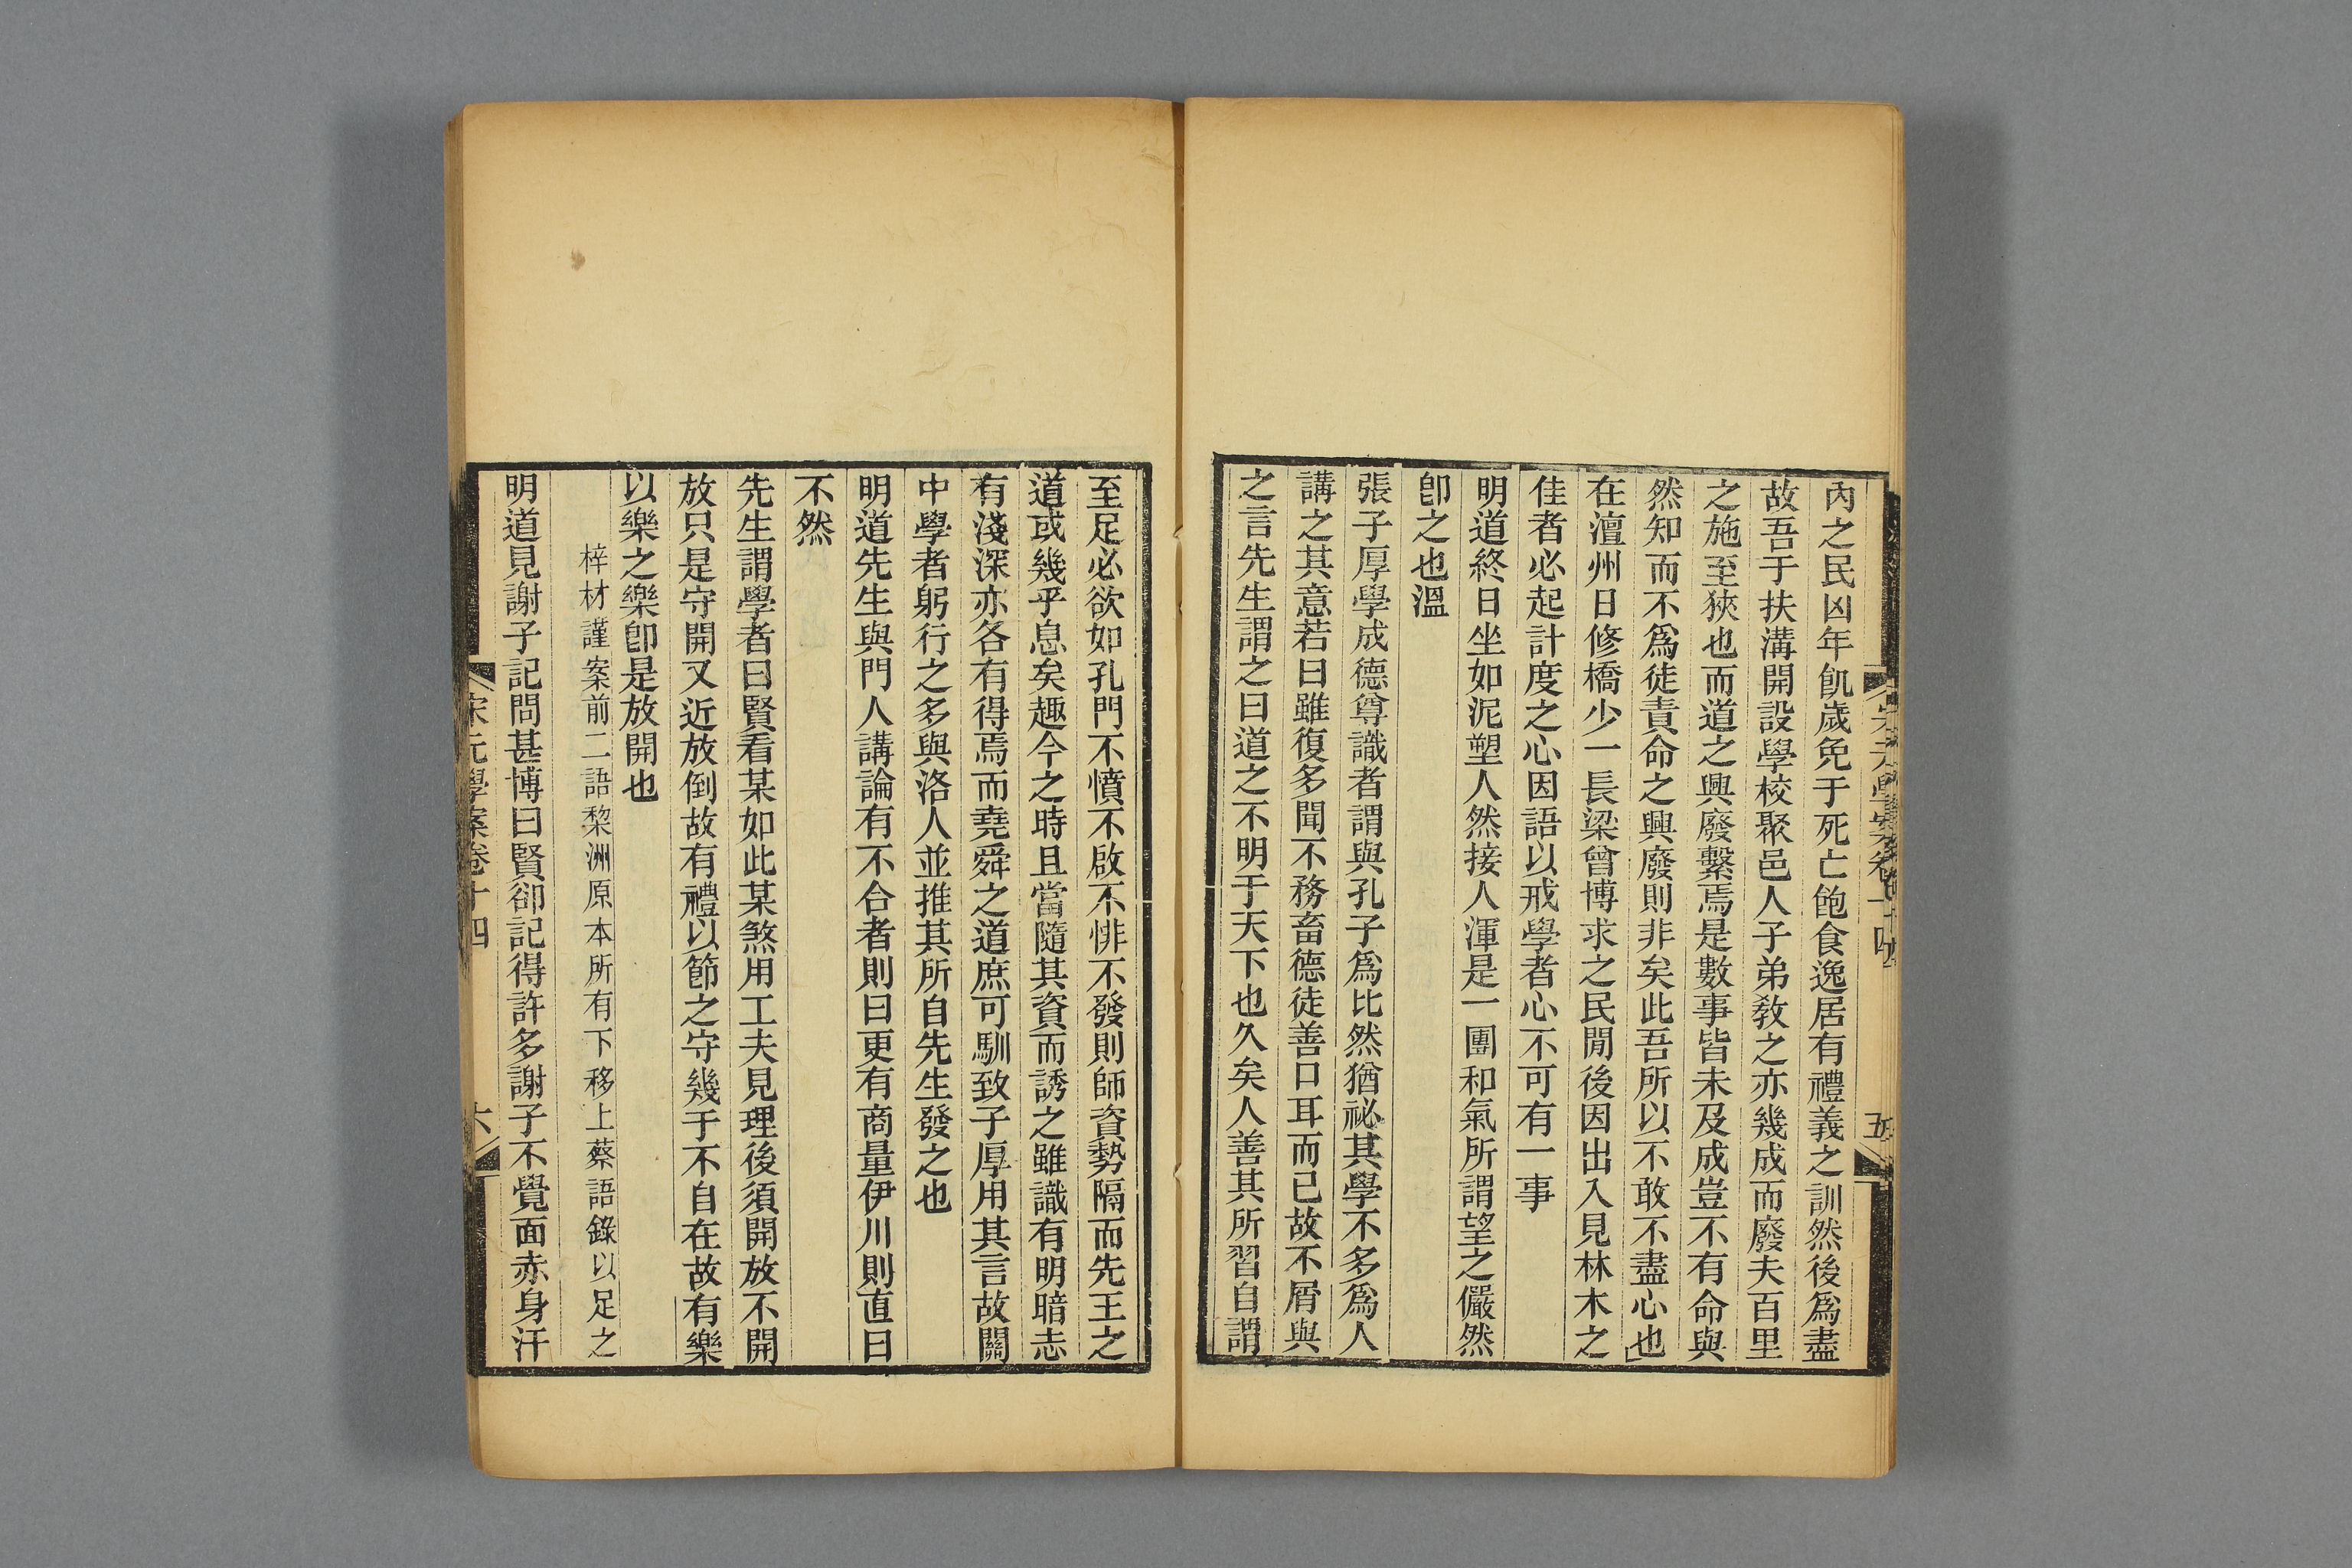 內之民凶年飢歲免于死亡飽食逸居有禮義之訓然後爲盡
故吾于扶溝開設學校聚邑人子弟敎之亦幾成而廢夫百里
之施至狹也而道之興廢繫焉是數事皆未及成豈不有命與
然知而不爲徒責命之興廢則非矣此吾所以不敢不盡心也
在澶州日修橋少一長梁曾博求之民閒後因出入見林木之
佳者必起計度之心因語以戒學者心不可有一事
明道終日坐如泥塑人然接人渾是一團和氣所謂望之儼然
卽之也溫
張子厚學成德尊識者謂與孔子爲比然猶祕其學不多爲人
講之其意若曰雖復多聞不務畜德徒善口耳而已故不屑與
之言先生謂之曰道之不明于天下也久矣人善其所習自謂
至足必欲如孔門不憤不啟不悱不發則師資勢隔而先王之
道或幾乎息矣趣今之時且當隨其資而誘之雖識有明暗志
有淺深亦各有得焉而堯舜之道庶可馴致子厚用其言故關
中學者躬行之多與洛人並推其所自先生發之也
明道先生與門人講論有不合者則曰更有商量伊川則直曰
不然
先生謂學者曰賢看某如此某煞用工夫見理後須開放不開
放只是守開又近放倒故有禮以節之守幾于不自在故有樂
以樂之樂卽是放開也
梓材謹案前二語棃洲原本所有下移上蔡語錄以足之
明道見謝子記問甚博曰賢卻記得許多謝子不覺面赤身汗
宋元學案卷十四
六